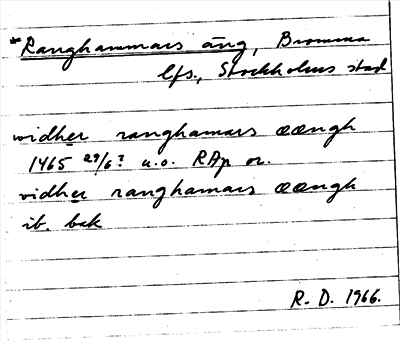 *Ranghammars äng, Bromma
lfs., Stockholms stad
widher ranghamars æængh
1465 29/6? u.o. RAp or.
vidher ranghamars æængh
ib. bak
R. D. 1966.